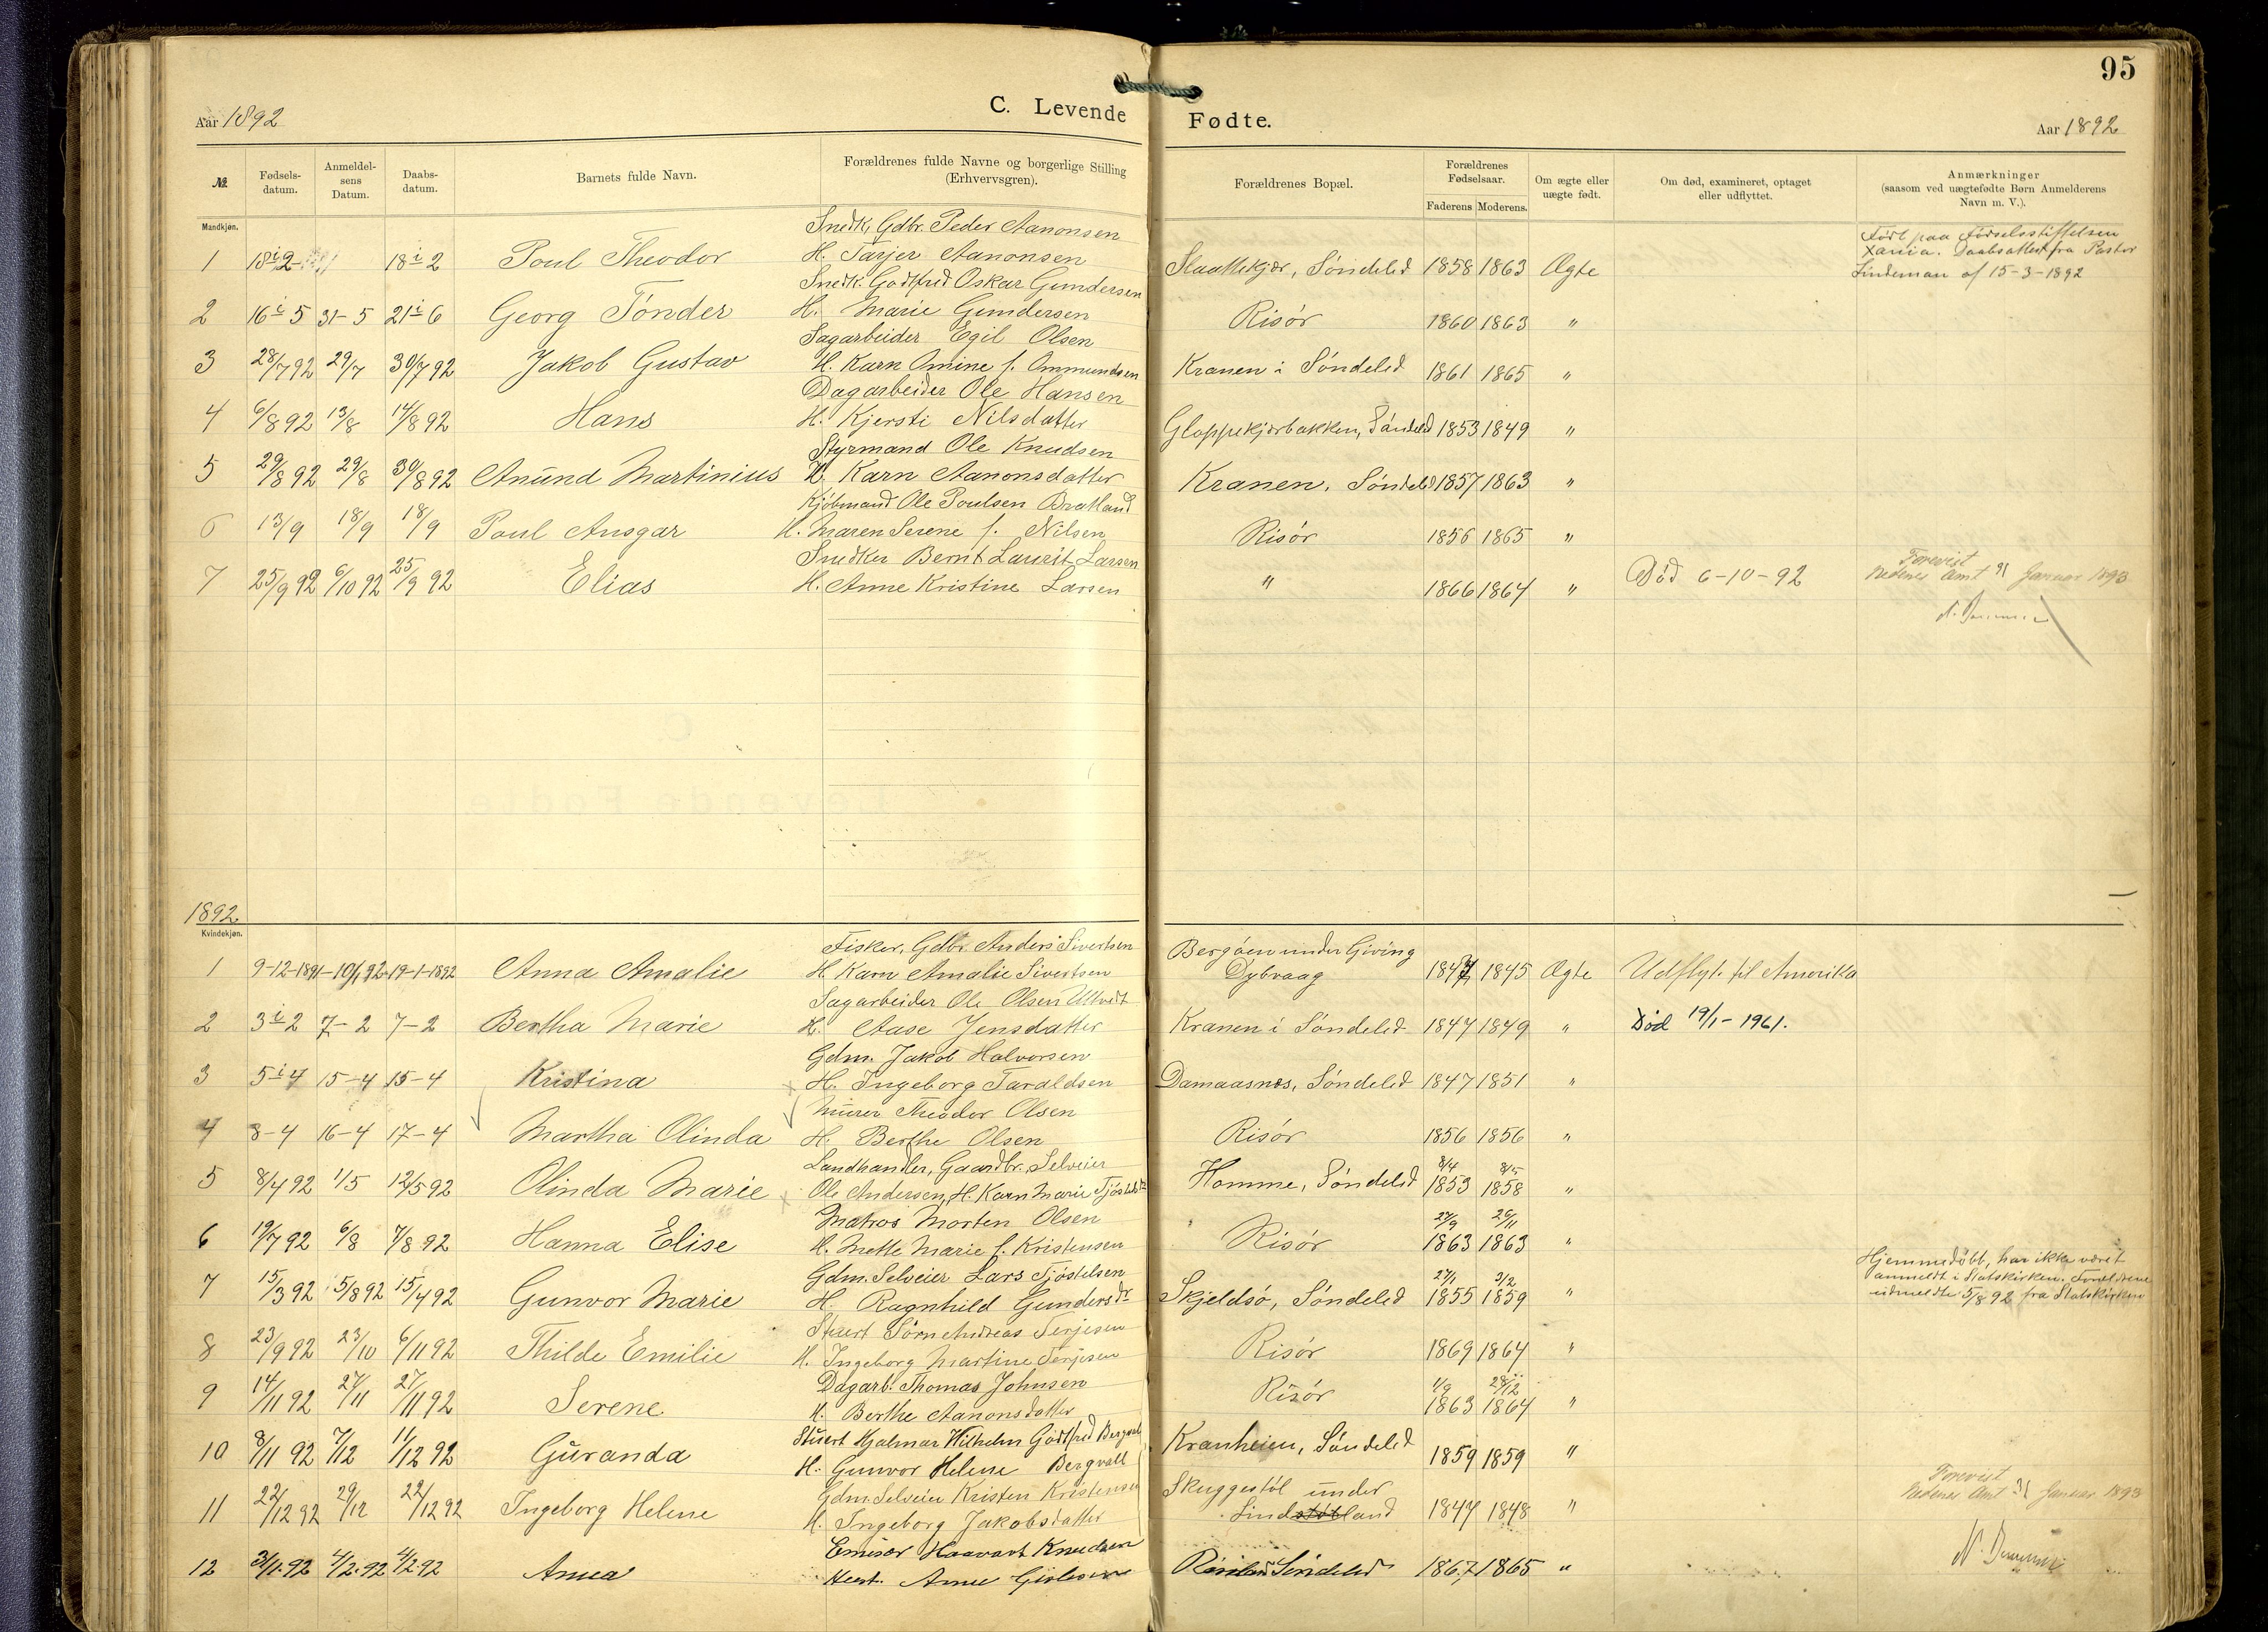 95
Aar 1892 C. Levende Fødte. Aar 1892
№. Fødsels-datum. Anmeldel-sens Datum. Daabs-datum. Barnets fulde Navn. Forældrenes fulde Navne og borgerlige Stilling (Erhvervsgren). Forældrenes Bopæl. Forældrenes Fødselsaar. Faderens Moderens. Om ægte eller uægte født. Om død, examineret, optaget eller udflyttet. Anmærkninger (saasom ved uægtefødte Børn Anmelderens Navn m. V.).
Mandkjøn.
Snedk, Gdbr. Peder Aanonsen
1 18 i 2 18 i 2 Poul Theodor H. Tarjer Aanonsen Slaattekjær, Søndeled 1858 1863 Ægte Født paa Fødselsstiftelsen Xania. Daabsattest fra Pastor Lindeman af 15-3-1892
Snedk. Godtfred Oskar Gundersen
2 16 i 5 31-5 21 i 6 Georg Tønder H. Marie Gundersen Risør 1860 1863 "
Sagarbeider Egil Olsen
3 28/7 92 29/7 30/7 92 Jakob Gustav H. Karn Amine f. Ommundsen Kranen i Søndeled 1861 1865 "
Dagarbeider Ole Hansen
4 6/8 92 13/8 14/8 92 Hans H. Kjersti Nilsdatter Gloppekjærbakken, Søndeled 1853 1849 "
Styrmand Ole Knudsen
5 29/8 92 29/8 30/8 92 Anund Martinius H. Karn Aanonsdatter Kranen, Søndeled 1857 1863 "
Kjøbmand Ole Poulsen Bratland
6 13/9 18/9 18/9 Poul Ansgar H. Maren Serene f. Nilsen Risør 1856 1865 "
Snedker Bernt Laurit Larsen
7 25/9 92 6/10 92 25/9 92 Elias H. Anne Kristine Larsen " 1866 1864 " Død 6-10-92 Forevist Nedenes Amt 31 Januar 1893
1892
Kvindekjøn.
Fisker, Gdbr. Anders Sivertsen
1 9-12-1891 10/1 92 19-1-1892 Anna Amalie H. Karn Amalie Sivertsen Bergøen under Giving Dybvaag 1847 1845 Ægte Udflyt. til Amerika
Sagarbeider Ole Olsen Ultvedt
2 3 i 2 7-2 7-2 Bertha Marie H. Aase Jensdatter Kranen i Søndeled 1847 1849 " Død 19/1-1961.
Gdm. Jakob Halvorsen
3 5 i 4 15-4 15-4 Kristina H. Ingeborg Taraldsen Damaasnes, Søndeled 1847 1851 "
Murer Theodor Olsen
4 8-4 16-4 17-4 Martha Olinda H. Berthe Olsen Risør 1856 1856 "
Landhandler, Gaardbr., Selveier
5 8/4 92 1/5 12/5 92 Olinda Marie Ole Andersen, H. Karn Marie Homme, Søndeled 8/4 1853 8/5 1858 "
Matros Morten Olsen
6 19/7 92 6/8 7/8 92 Hanna Elise H. Mette Marie f. Kristensen Risør 27/9 1863 26/11 1863 "
Gdm. Selveier Lars Tjøstelsen
7 15/3 92 5/8 92 15/4 92 Gunvor Marie H. Ragnhild Gundersdr. Skjeldsø, Søndeled 27/1 1855 3/2 1859 " Hjemmedøbt, har ikke været anmeldt i Statskirken. Forældrene udmeldte 5/8 92 fra Statskirken
Stuert Sørn Andreas Terjesen
8 23/9 92 23/10 6/11 92 Thilde Emilie H. Ingeborg Martine Terjesen Risør 1869 1864 "
Dagarb. Thomas Johnsen
9 14/11 92 27/11 27/11 92 Serene H. Berthe Aanonsdatter Risør 1/9 1863 28/12 1864 "
Stuert Hjalmar Wilhelm Godtfred Bergvall
10 8/11 92 7/12 11/12 92 Guranda H. Gunvor Helene Bergvall Kranheien, Søndeled 1859 1859 "
Gdm. Selveier Kristen Kristensen
11 22/12 92 29/12 22/12 92 Ingeborg Helene H. Ingeborg Jakobsdatter Skuggestøl under Lindstølland 1847 1848 "
Emisær Haavart Knudsen
12 3/11.92 4/2.92 4/2.92 Anna Hust. Anne Søndeled 1867 1865 "
Forevist Nedenes Amt 31 Januar 1893